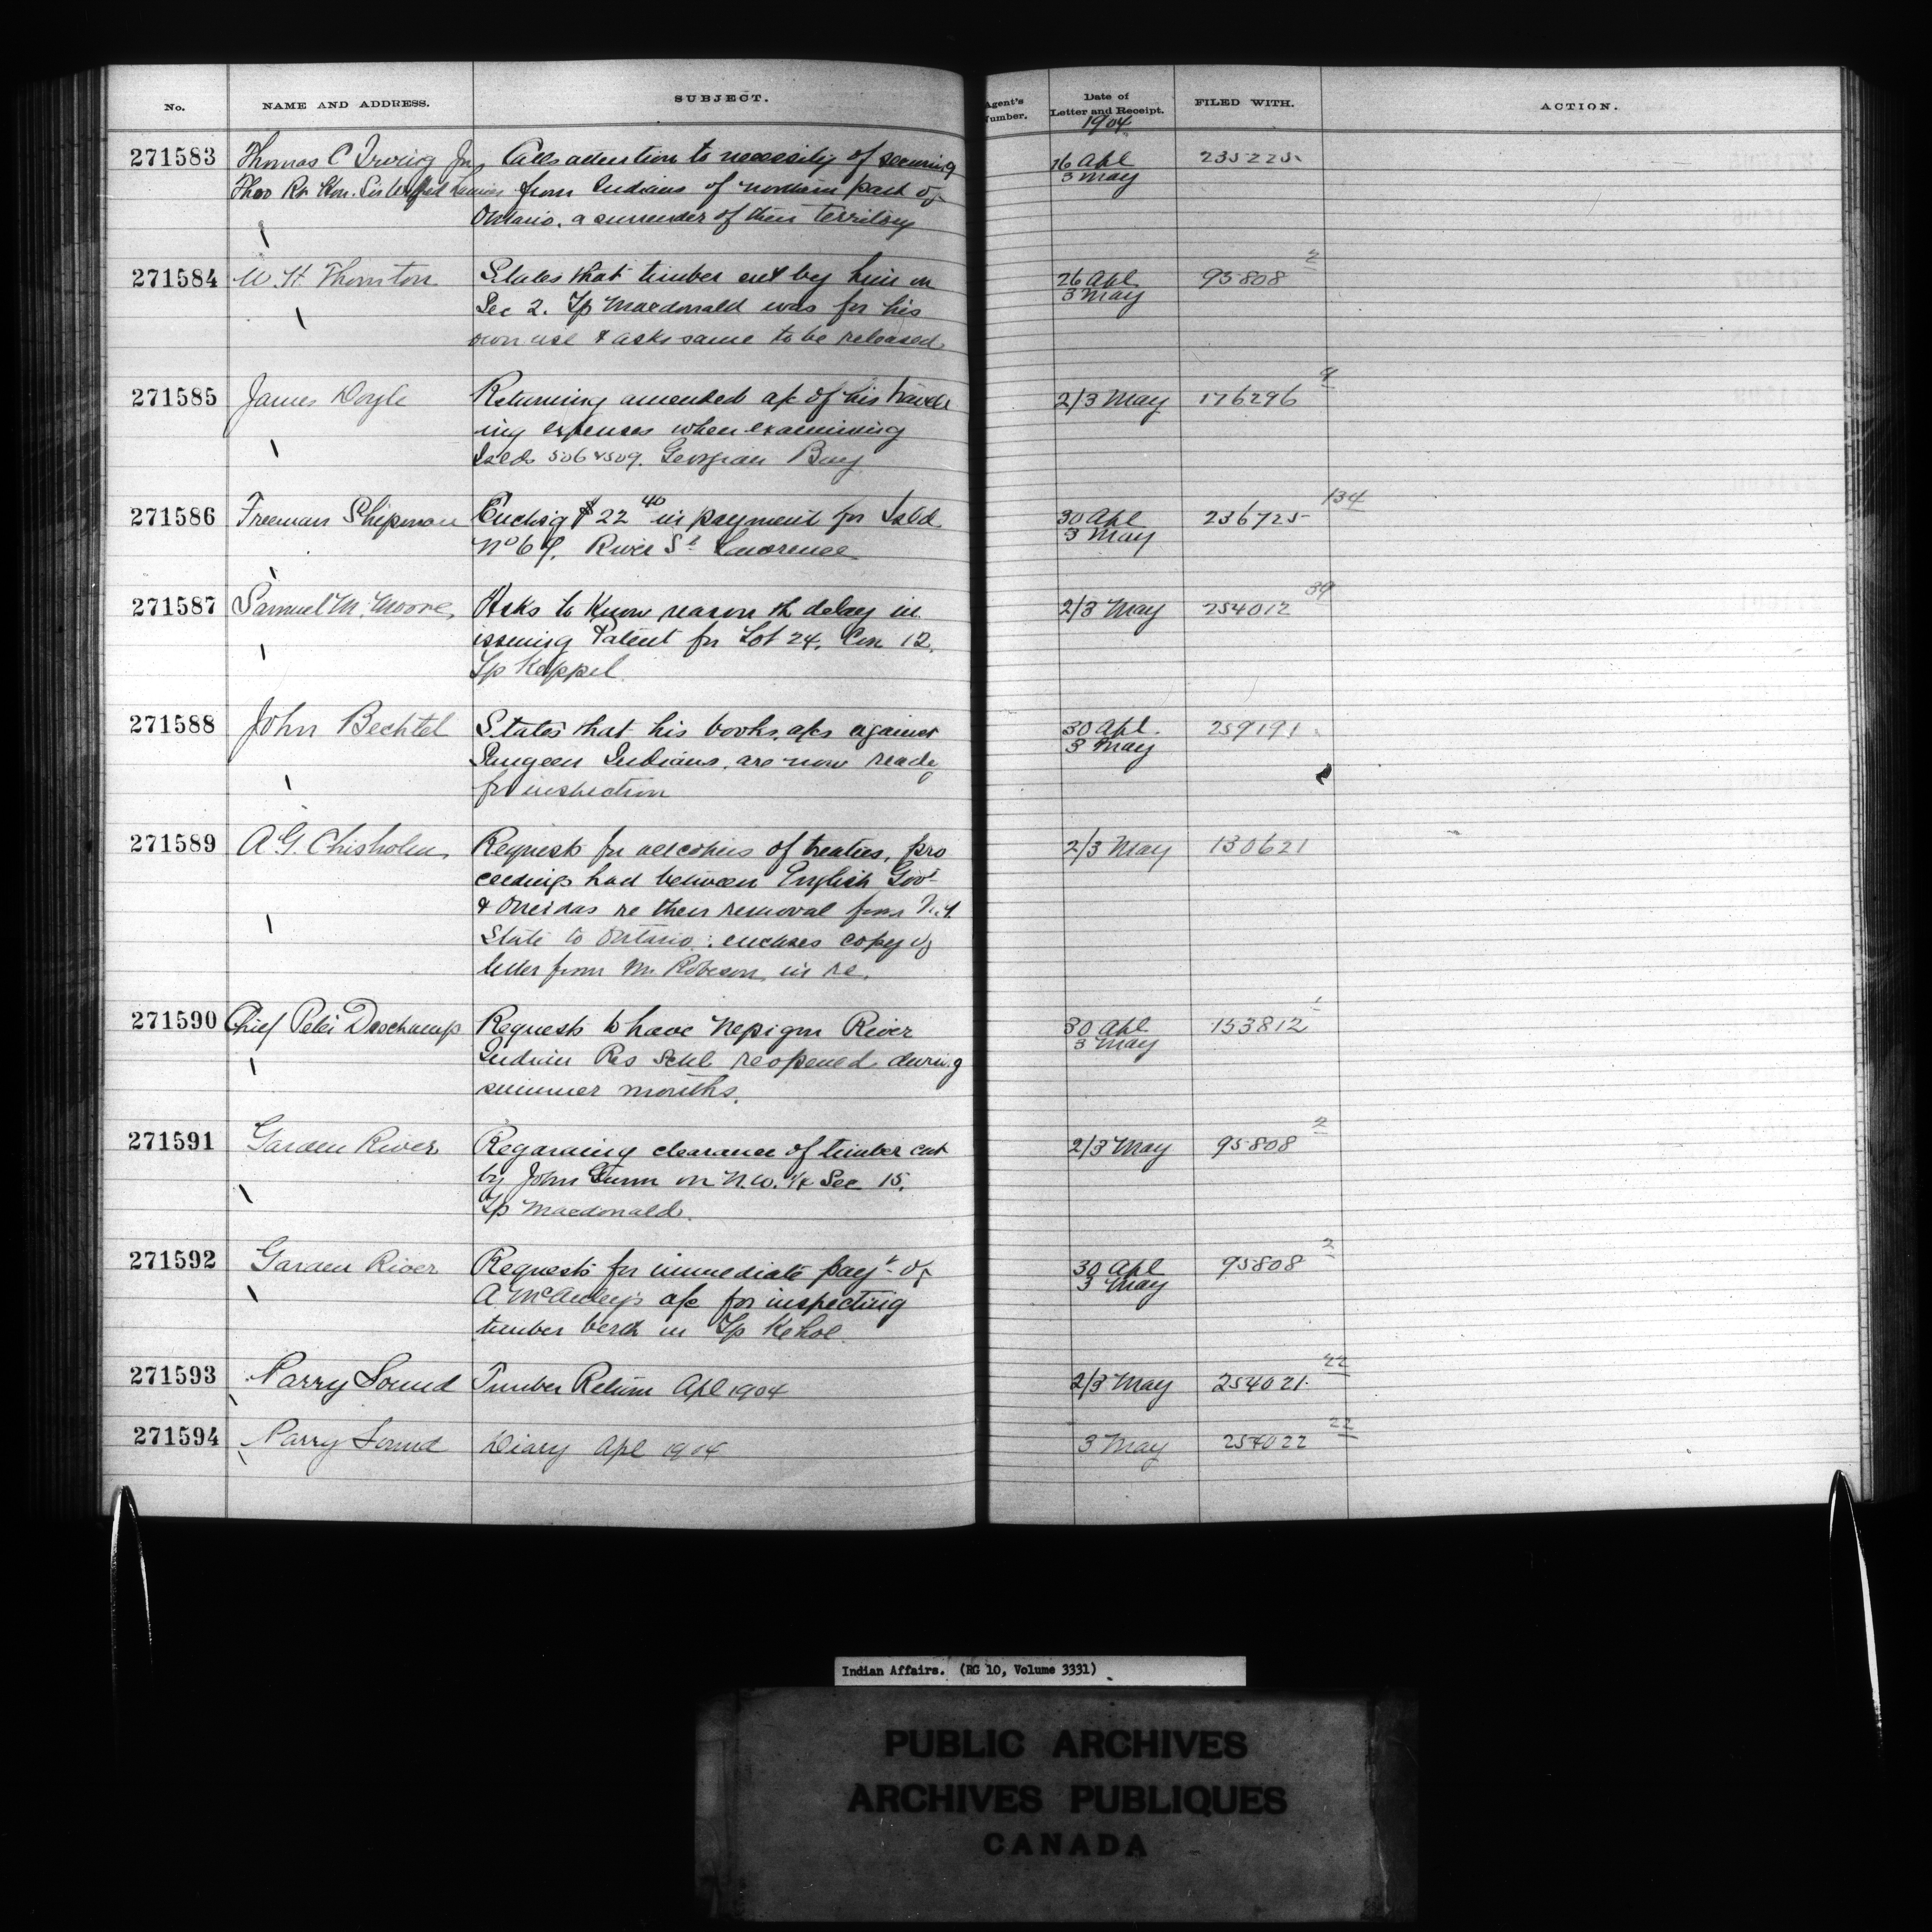 No. NAME AND ADDRESS. SUBJECT. Agent's Number. Date of Letter and Receipt. FILED WITH. ACTION.
1904
271583 Thomas C Irving Jr, Calls attention to necessity of securing 26 Apl 235225
Thro Rt Hon. Sir Wilfrid Laurier from Indians of northern part of 3 May
Ontario, a surrender of their territory
271584 W. H. Thornton States that timber cut by him on 26 Apl 95808 2
Sec 2. Tp Macdonald was for his 3 May
own use & asks same to be released
271585 James Doyle Returning amended a/c of his travell 2/3 May 176296 9
ing expenses when examining
Islds 506 & 509. Georgian Bay
271586 Freeman Shipman Enclsg $22 40 in payment for Isld 30 Apl 236725 134
No 6 River St Lawrence 3 May
271587 Samuel M. Moore, Asks to know reason of delay in 2/3 May 254012 39
issuing Patent for Lot 24, Con 12,
Tp Keppel
271588 John Bechtel States that his books, a/cs against 30 Apl. 259191
Saugeen Indians, are now ready 3 May
for inspection
271589 A. G. Chisholm, Requests for all copies of treaties, pro 2/3 May 130621
ceedings had between English Govt
& Oneidas re their removal from N.Y.
State to Ontario: encloses copy of
letter from Mr Robeson, in re.
271590 Chief Peter Deschamps Requests to have Nepigon River 30 Apl 153812 1
Indian Res Schl reopened during 3 May
summer months.
271591 Garden River Regarding clearance of timber cut 2/3 May 95808 2
by John Gunn on N.W. 1/4 Sec 15.
Tp Macdonald.
271592 Garden River Requests for immediate payt of 30 Apl 95808 2
A a/c for inspecting 3 May
timber berth in Tp Kehoe
271593 Parry Sound Timber Return Apl 1904 2/3 May 254021 22
271594 Parry Sound Diary Apl 1904 3 May 254022 22
Indian Affairs. (RG 10, Volume 3331)
PUBLIC ARCHIVES
ARCHIVES PUBLIQUES
CANADA